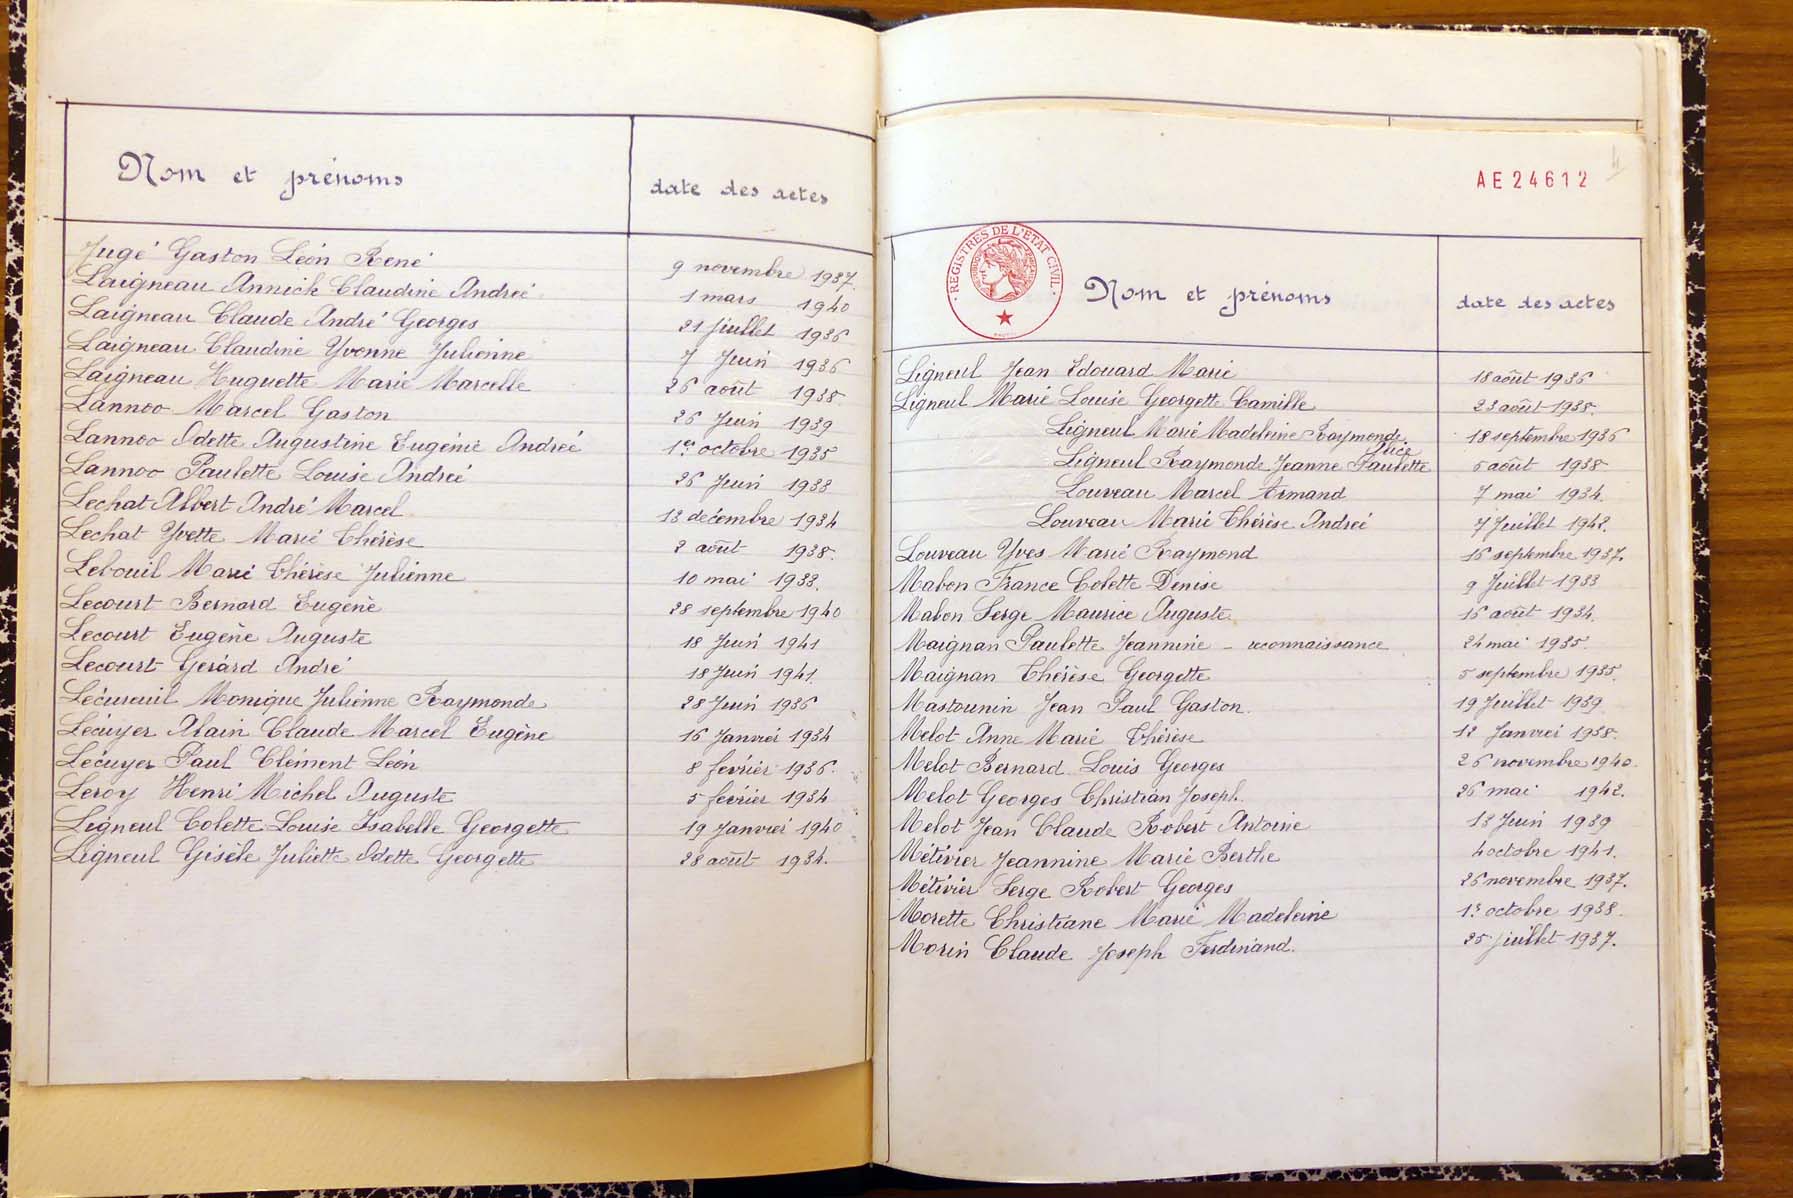 Nom et prénoms date des actes
Jugé Gaston Léon René 9 novembre 1937.
Laigneau Annick Claudine Andrée 1 mars 1940
Laigneau Claude André Georges 21 juillet 1936
Laigneau Claudine Yvonne Julienne 7 Juin 1936
Laigneau Huguette Marie Marcelle 26 août 1938
Lannoo Marcel Gaston 26 Juin 1939
Lannoo Odette Augustine Eugénie Andrée 1er octobre 1935
Lannoo Paulette Louise Andrée 26 Juin 1933
Lechat Albert André Marcel 13 décembre 1934
Lechat Yvette Marie Thérèse 2 août 1938.
Lebouil Marie Thérèse Julienne 10 mai 1933.
Lecourt Bernard Eugène 28 septembre 1940
Lecourt Eugène Auguste 18 Juin 1941
Lecourt Gérard André 18 Juin 1941.
Lécureuil Monique Julienne Raymonde 28 Juin 1936
Lécuyer Alain Claude Marcel Eugène 16 Janvier 1934
Lécuyer Paul Clément Léon 8 février 1936.
Leroy Henri Michel Auguste 5 février 1934
Ligneul Colette Louise Isabelle Georgette 19 Janvier 1940
Ligneul Gisèle Juliette Odette Georgette 28 août 1934.
AE24612
REGISTRES DE L'ÉTAT CIVIL
Nom et prénoms date des actes
Ligneul Jean Edouard Marie 18 août 1936
Ligneul Marie Louise Georgette Camille 23 août 1938.
Ligneul Marie Madeleine Raymonde. 18 septembre 1936
Alice
Ligneul Raymonde Jeanne Paulette 5 août 1938
Louveau Marcel Armand 7 mai 1934.
Louveau Marie Thérèse Andrée 7 Juillet 1942.
Louveau Yves Marie Raymond 16 septembre 1937.
Mabon France Colette Denise 9 Juillet 1933
Mabon Serge Maurice Auguste 16 août 1934.
Maignan Paulette Jeannine - reconnaissance 24 mai 1935.
Maignan Thérèse Georgette 5 septembre 1935.
Mastounin Jean Paul Gaston. 19 Juillet 1939
Melot Anne Marie Thérèse 12 Janvier 1938.
Melot Bernard Louis Georges 26 novembre 1940.
Melot Georges Christian Joseph. 26 mai 1942.
Melot Jean Claude Robert Antoine 13 Juin 1939
Métivier Jeannine Marie Berthe 4 octobre 1941.
Métivier Serge Robert Georges 26 novembre 1937.
Morette Christiane Marie Madeleine 1er octobre 1938.
Morin Claude Joseph Ferdinand. 25 juillet 1937.